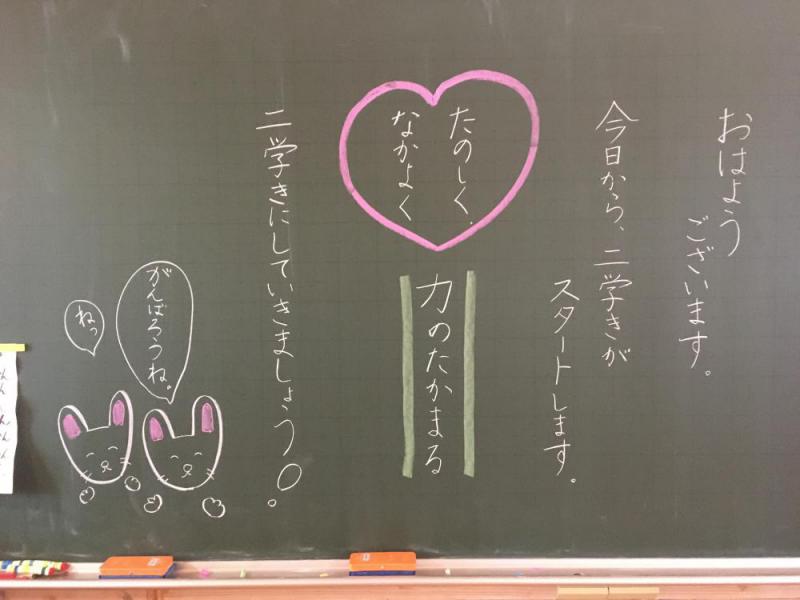 おはよう
ございます。
今日から、二学きが
スタートします。
たのしく、
なかよく
力のたかまる
二学きにしていきましょう!
がんばろうね。
ねっ